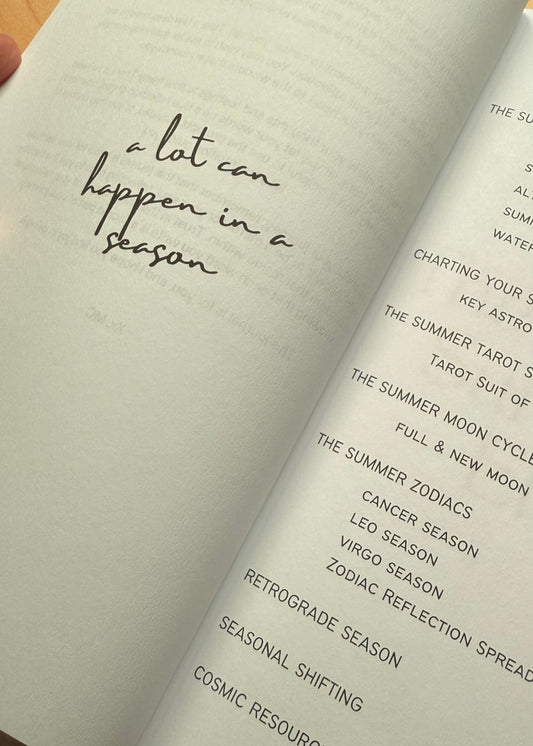 a lot can
happen in a
season
THE SU
S
ALT
SUMM
WATER
CHARTING YOUR S
KEY ASTRO
THE SUMMER TAROT S
TAROT SUIT OF
THE SUMMER MOON CYCLE
FULL & NEW MOON
THE SUMMER ZODIACS
CANCER SEASON
LEO SEASON
VIRGO SEASON
ZODIAC REFLECTION SPREAD
RETROGRADE SEASON
SEASONAL SHIFTING
COSMIC RESOURC